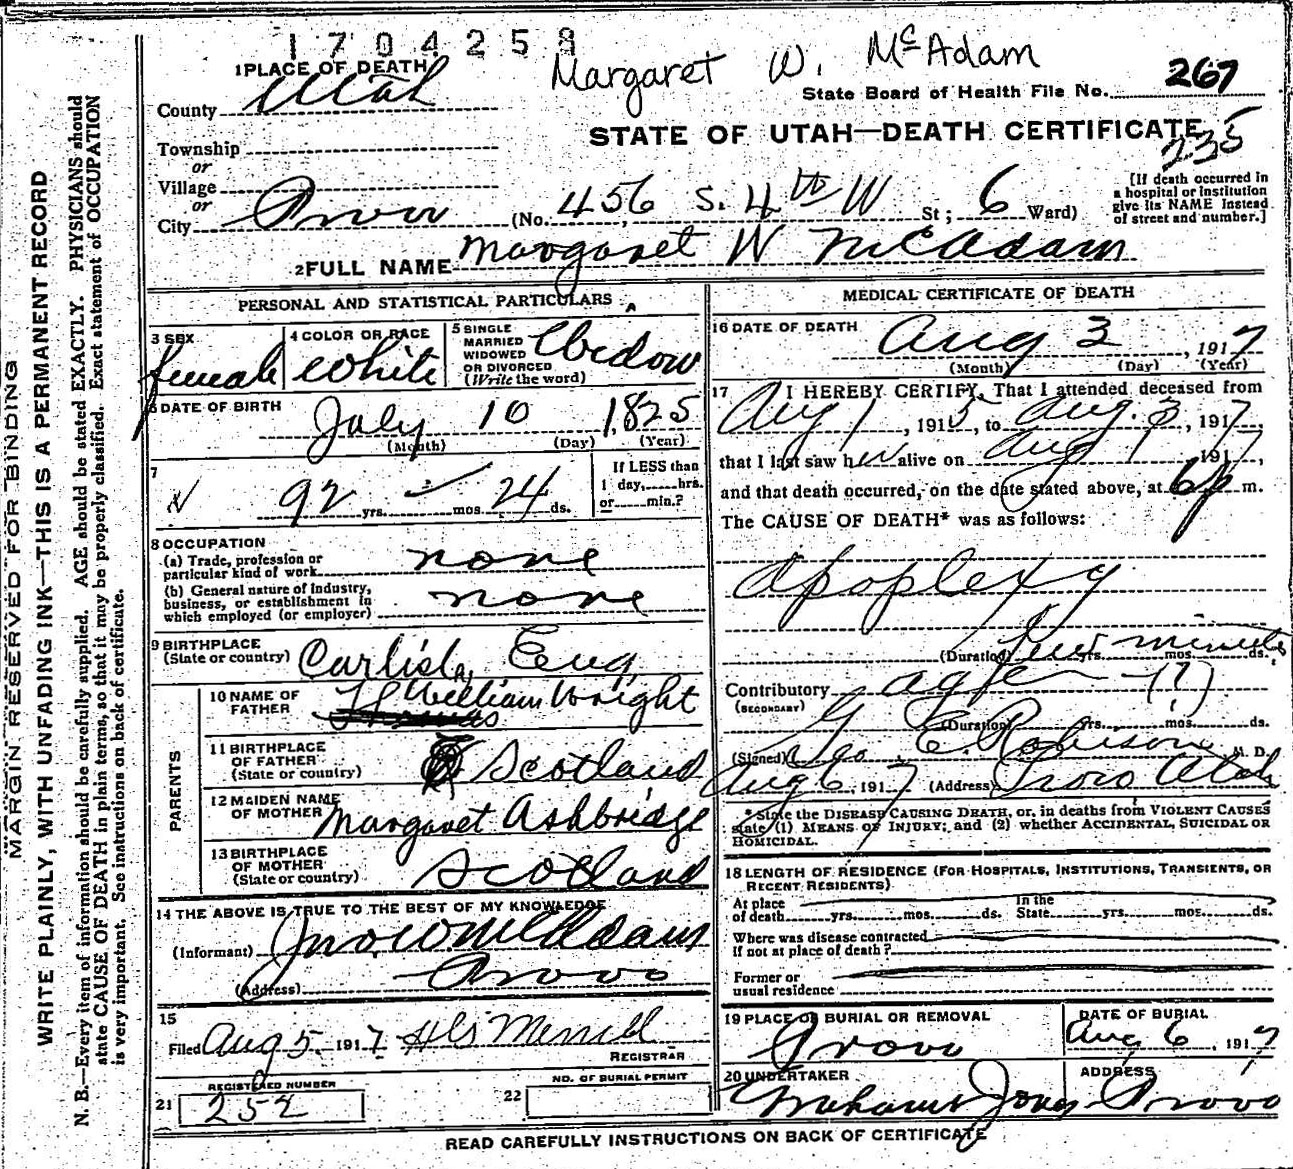 1704258
Margaret W. McAdam
1 PLACE OF DEATH
County Utah
State Board of Health File No. 267
STATE OF UTAH—DEATH CERTIFICATE
235
Township
or
Village
or
City Provo (No. 456 S. 4th W St; 6 Ward)
[If death occurred in
a hospital or institution
give its NAME instead
of street and number.]
2 FULL NAME Margaret W McAdam
PERSONAL AND STATISTICAL PARTICULARS
3 SEX
female
4 COLOR OR RACE
White
5 SINGLE
MARRIED
WIDOWED
OR DIVORCED
(Write the word)
Widow
6 DATE OF BIRTH
July 10 1825
(Month) (Day) (Year)
7
92 yrs. — mos. 24 ds.
If LESS than
1 day, hrs.
or min.?
8 OCCUPATION
(a) Trade, profession or
particular kind of work none
(b) General nature of industry,
business, or establishment in
which employed (or employer) none
9 BIRTHPLACE
(State or country) Carlisle, Eng.
PARENTS
10 NAME OF
FATHER William Wright
11 BIRTHPLACE
OF FATHER
(State or country) Scotland
12 MAIDEN NAME
OF MOTHER Margaret Ashbridge
13 BIRTHPLACE
OF MOTHER
(State or country) Scotland
14 THE ABOVE IS TRUE TO THE BEST OF MY KNOWLEDGE
(Informant) Jno W McAdam
(Address) Provo
15
Filed Aug 5 1917 Merrill
REGISTRAR
REGISTERED NUMBER
21 252
NO. OF BURIAL PERMIT
22
MEDICAL CERTIFICATE OF DEATH
16 DATE OF DEATH
Aug 3, 1917
(Month) (Day) (Year)
17 I HEREBY CERTIFY, That I attended deceased from
Aug 1, 1915, to Aug. 3, 1917,
that I last saw her alive on Aug 1 1917,
and that death occurred, on the date stated above, at 6 p m.
The CAUSE OF DEATH* was as follows:
Apoplexy
(Duration) few yrs. minutes mos. ds.
Contributory
(SECONDARY)
(Duration) yrs. mos. ds.
(Signed) Geo E. Robison M. D.
Aug 6, 1917 (Address) Provo Utah
* State the DISEASE CAUSING DEATH, or, in deaths from VIOLENT CAUSES
state (1) MEANS OF INJURY; and (2) whether ACCIDENTAL, SUICIDAL OR
HOMICIDAL.
18 LENGTH OF RESIDENCE (FOR HOSPITALS, INSTITUTIONS, TRANSIENTS, OR
RECENT RESIDENTS)
At place
of death yrs. mos. ds.
In the
State yrs. mos. ds.
Where was disease contracted
if not at place of death?
Former or
usual residence
19 PLACE OF BURIAL OR REMOVAL
Provo
DATE OF BURIAL
Aug 6, 1917
20 UNDERTAKER
Jones
ADDRESS
Provo
READ CAREFULLY INSTRUCTIONS ON BACK OF CERTIFICATE
MARGIN RESERVED FOR BINDING
WRITE PLAINLY, WITH UNFADING INK—THIS IS A PERMANENT RECORD
N. B.—Every item of information should be carefully supplied. AGE should be stated EXACTLY. PHYSICIANS should
state CAUSE OF DEATH in plain terms, so that it may be properly classified. Exact statement of OCCUPATION
is very important. See instructions on back of certificate.